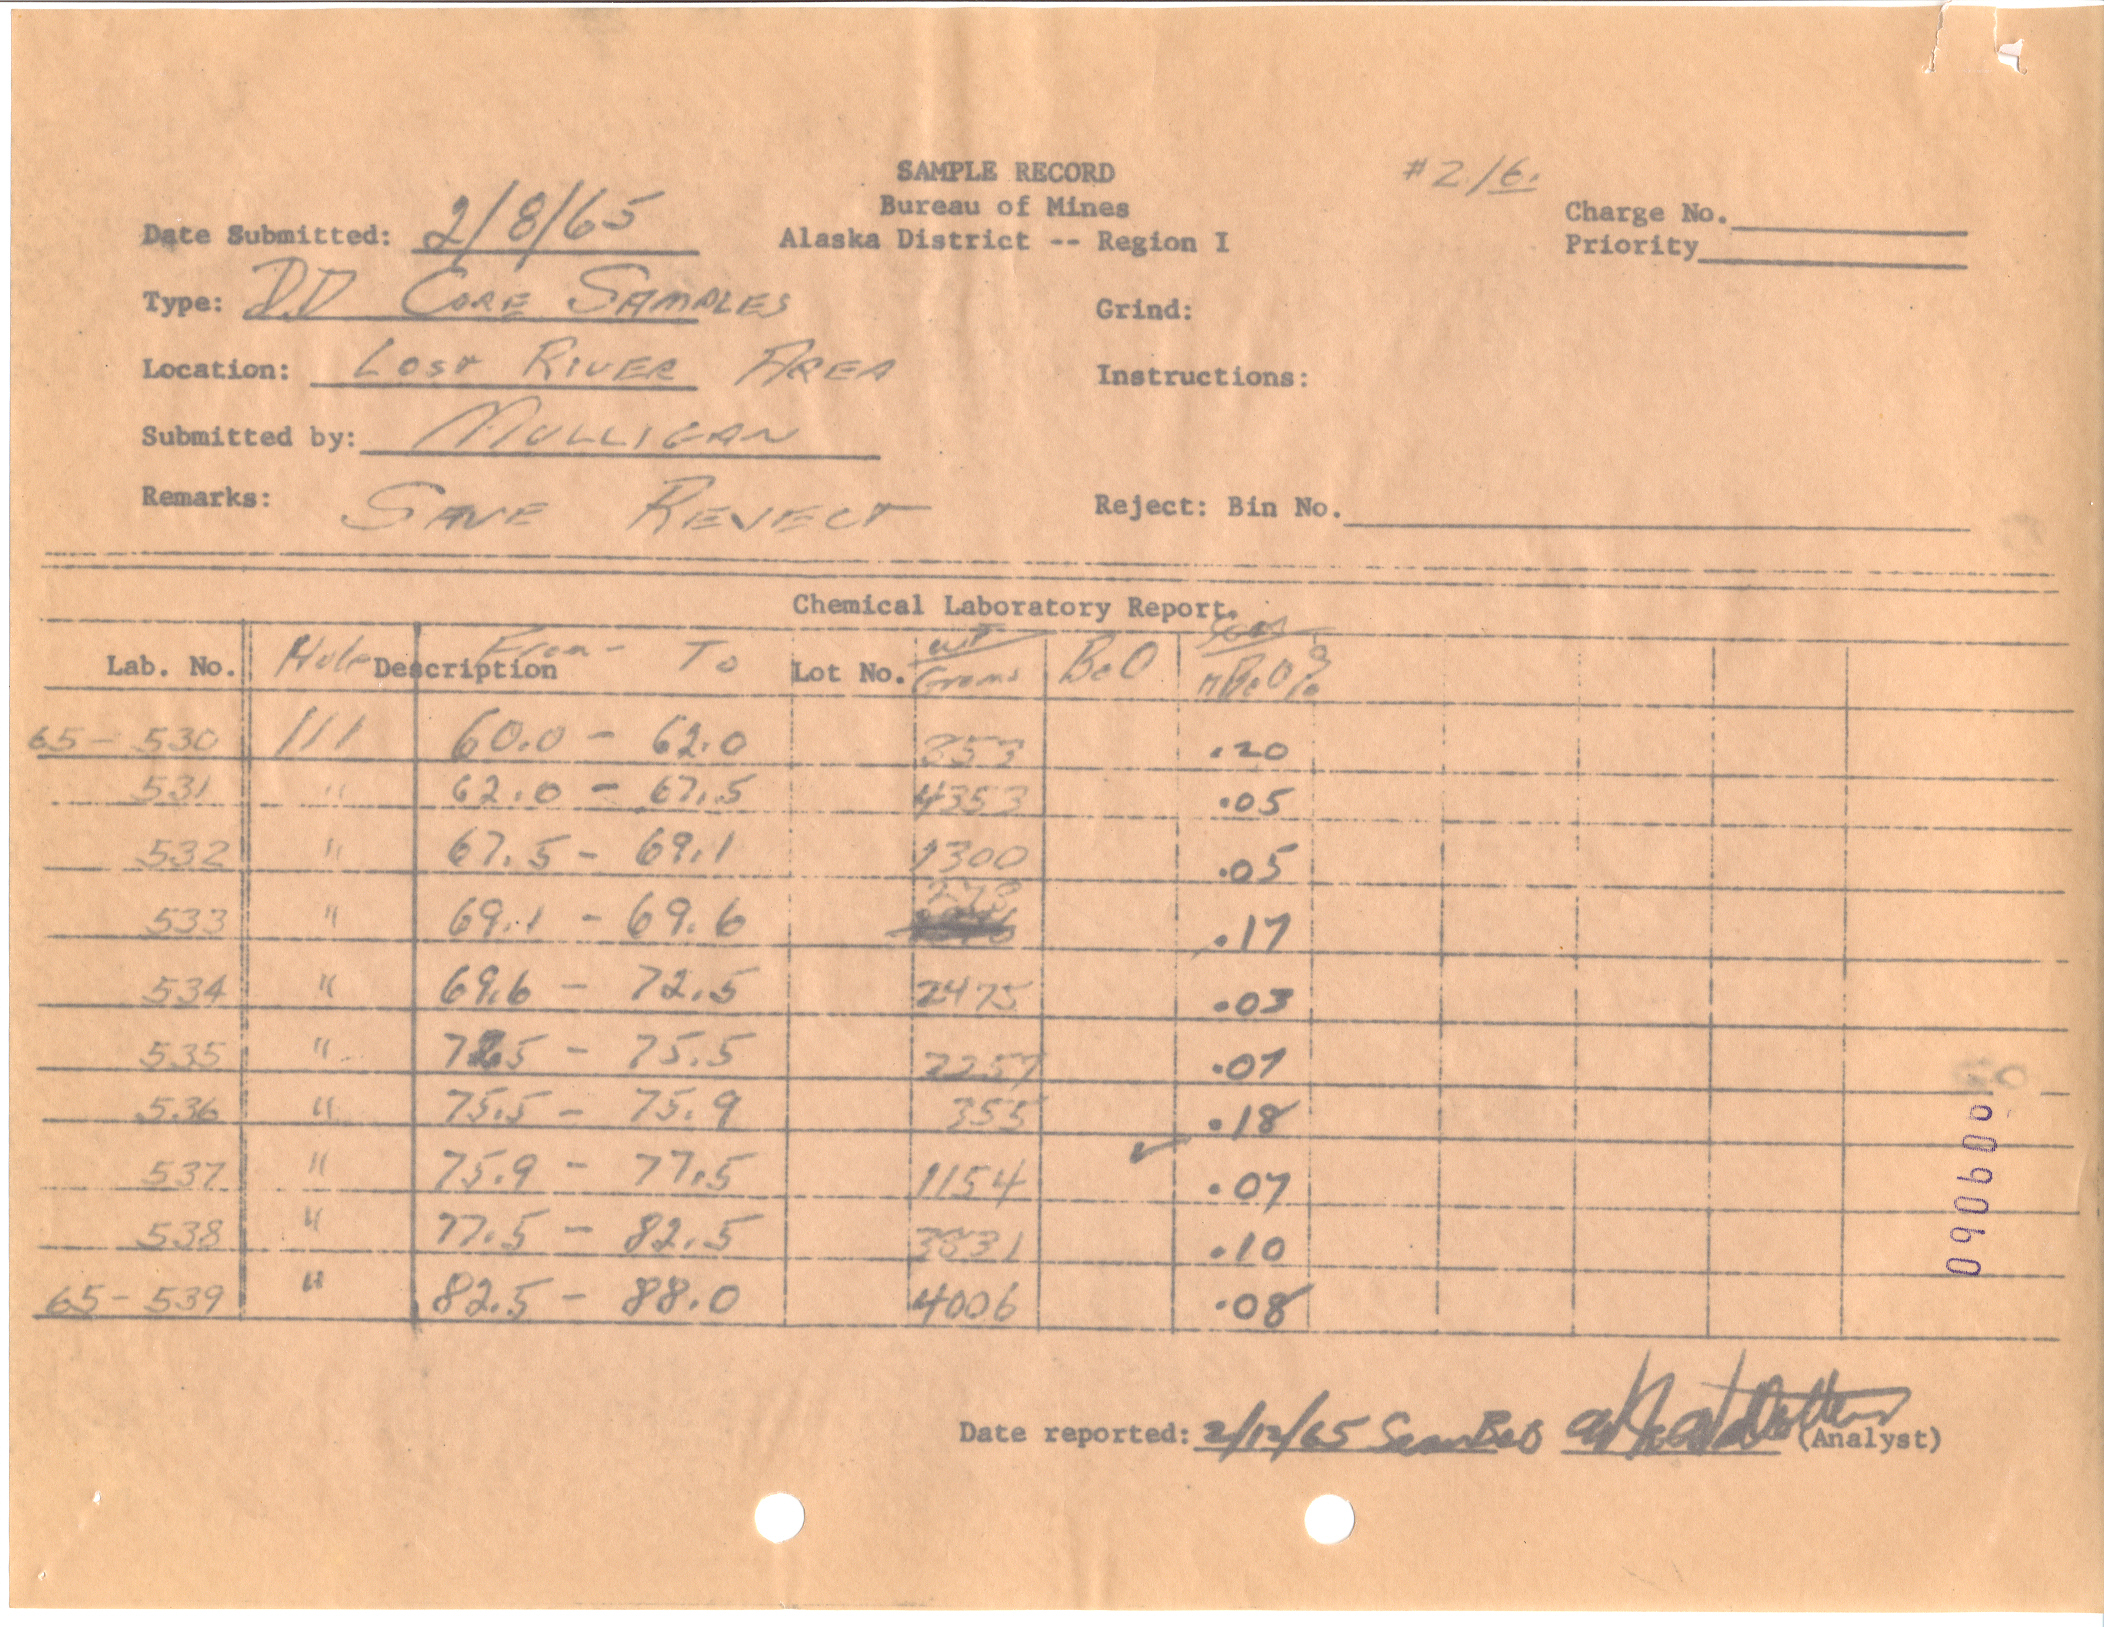 SAMPLE RECORD
#2/6.
Bureau of Mines
Charge No.
Date Submitted: 2/8/65
Alaska District -- Region I
Priority
Type: D.D Core Samples
Grind:
Location: Lost River Area
Instructions:
Submitted by: Mulligan
Remarks: Save Reject
Reject: Bin No.
Chemical Laboratory Report.
Lab. No. Hole Description From - To Lot No. wt Grams BeO BeO %
65 - 530 111 60.0 - 62.0 353 .20
531 " 62.0 - 67.5 4353 .05
532 " 67.5 - 69.1 1300 .05
533 " 69.1 - 69.6 278 .17
534 " 69.6 - 72.5 2475 .03
535 " 72.5 - 75.5 2257 .07
536 " 75.5 - 75.9 355 .18
537 " 75.9 - 77.5 1154 .07
538 " 77.5 - 82.5 3831 .10
65 - 539 " 82.5 - 88.0 4006 .08
Date reported: 2/12/65 BeO (Analyst)